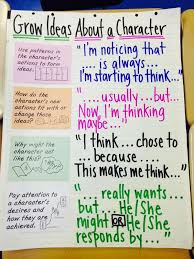 Grow Ideas About a Character
Use patterns in
the character's
actions to form
ideas.
"I'm noticing that
.... is always....
I'm starting to think..."
How do the
character's new
actions fit with
or change our
ideas?
"... usually...but...
Now, I'm thinking
maybe..."
Why might the
character act
like this?
"I think... chose to
.... because ....
This makes me think..."
Pay attention to
a character's
desires and how
they are
achieved.
"... really wants...
but... He/She
might OR He/She
responds by..."